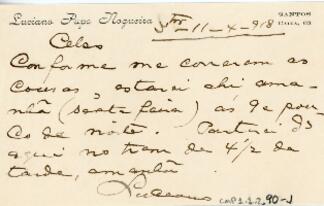 Luciano Pupo Nogueira
SANTOS
11-4-918
Celso
Conforme me correram as
cousas, estarei ahi ama-
nhã (sexta feira) ás 9 e pou-
co da noite. Partirei d'
aqui no trem de 4 1/2 da
tarde, amanhã.
Luciano
CMP 1.1.2.90-1